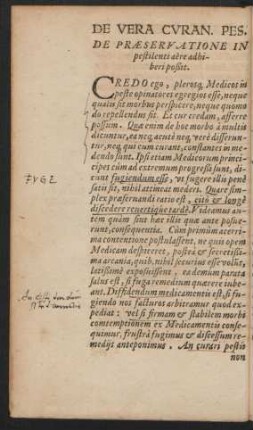 DE VERA CVRAN. PES.
DE PRÆSERVATIONE IN
pestilenti aëre adhi-
beri possit.
CREDO ego, plerosq; Medicos in
peste opinatores egregios esse, neque
qualis sit morbus perspicere, neque quomo
do repellendus sit. Et cur credam, afferre
possum. Quæ enim de hoc morbo à multis
dicuntur, ea neq; aeque neq; verè differun-
tur, neq; qui eum curant, constantes in me-
dendo sunt. Ipsi etiam Medicorum princi-
pes cùm ad extremum progressi sunt, di-
cunt fugiendum esse, vt fugere illis pen
satis sit, nihil attineat mederi. Quare sim-
plex præseruandi ratio est, citò & longè
discedere reuertique tardè. Videamus au-
tem quàm sint hæc illis quæ antè posue-
runt, consequentia. Cùm primùm acerri-
ma contentione postulassent, ne quis opem
Medicam desperet, posteà ex secretissi-
ma arcania, quib. nihil securius esse volūt,
latissimè exposuissent: eadem parata
salus est, si fuga remedium quærere iube-
ant. Diffidendum medicamentis est, si fu-
giendo nos facturos arbitramur quod ex-
pediat: vel si firmam & stabilem morbi
contemptionem ex Medicamentis conse-
quimur, frustrà fugimus & discessum re-
medijs anteponimus. An curari pestis
non
FVGE